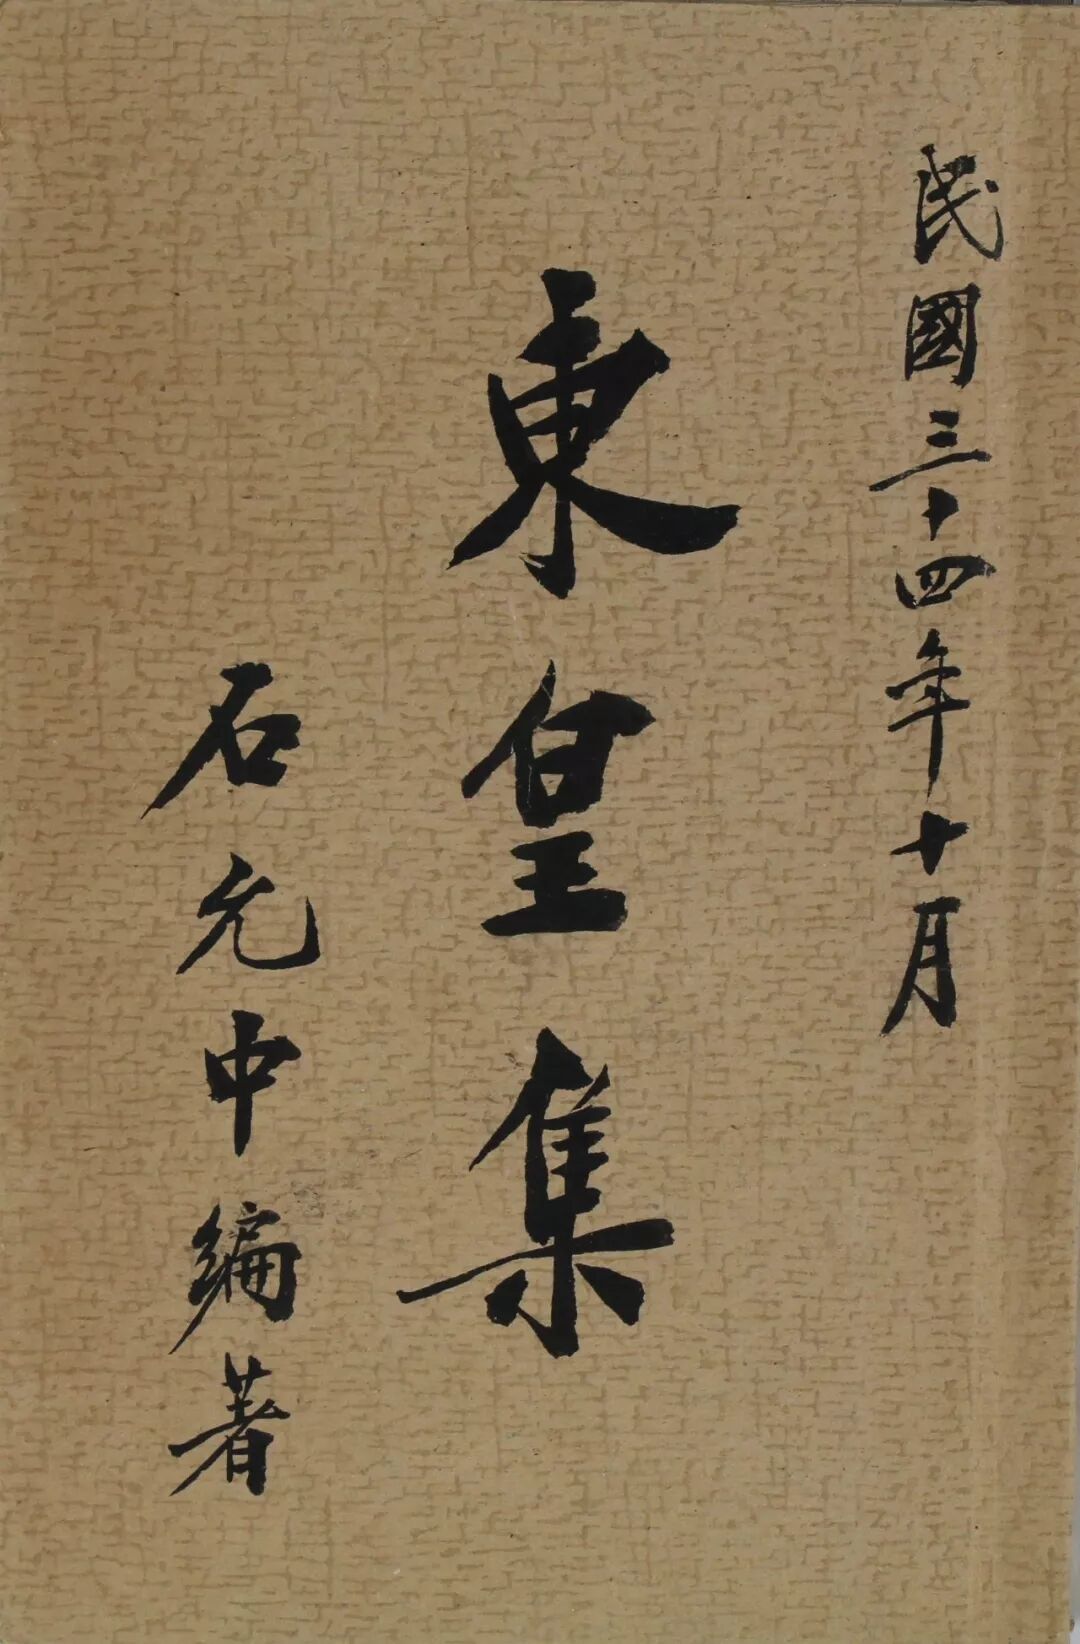 民國三十四年十月
東皇集
石允中編著